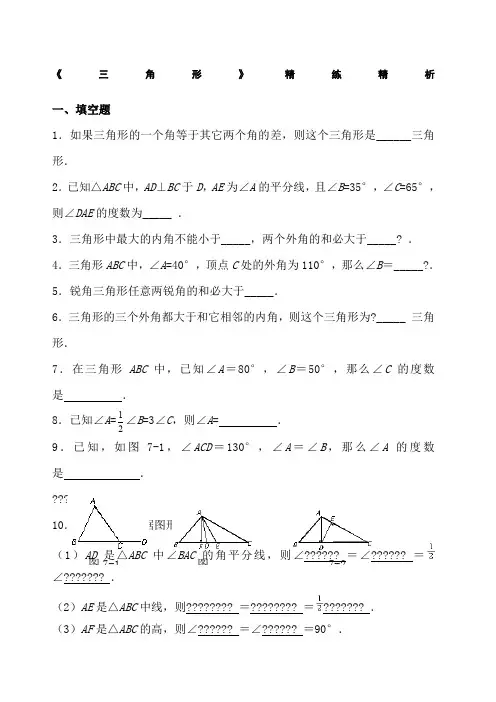 《 三 角 形 》 精 练 精 析
一、填空题
1．如果三角形的一个角等于其它两个角的差，则这个三角形是______三角
形．
2．已知△ABC中，AD⊥BC于D，AE为∠A的平分线，且∠B=35°，∠C=65°，
则∠DAE的度数为_____ ．
3．三角形中最大的内角不能小于_____，两个外角的和必大于_____? ．
4．三角形ABC中，∠A=40°，顶点C处的外角为110°，那么∠B＝_____?．
5．锐角三角形任意两锐角的和必大于_____．
6．三角形的三个外角都大于和它相邻的内角，则这个三角形为?_____ 三角
形．
7．在三角形ABC中，已知∠A＝80°，∠B＝50°，那么∠C的度数
是 ．
8．已知∠A=1/2∠B=3∠C，则∠A= ．
9．已知，如图7-1，∠ACD＝130°，∠A＝∠B，那么∠A的度数
是 ．
???
10． 据图形
A B C D
A B F D E C
A E B D C
图 7-1 图 7-2
（1）AD是△ABC中∠BAC的角平分线，则∠?????? ＝∠?????? ＝1/2
∠??????? ．
（2）AE是△ABC中线，则???????? ＝???????? ＝1/2??????? ．
（3）AF是△ABC的高，则∠?????? ＝∠?????? ＝90°．